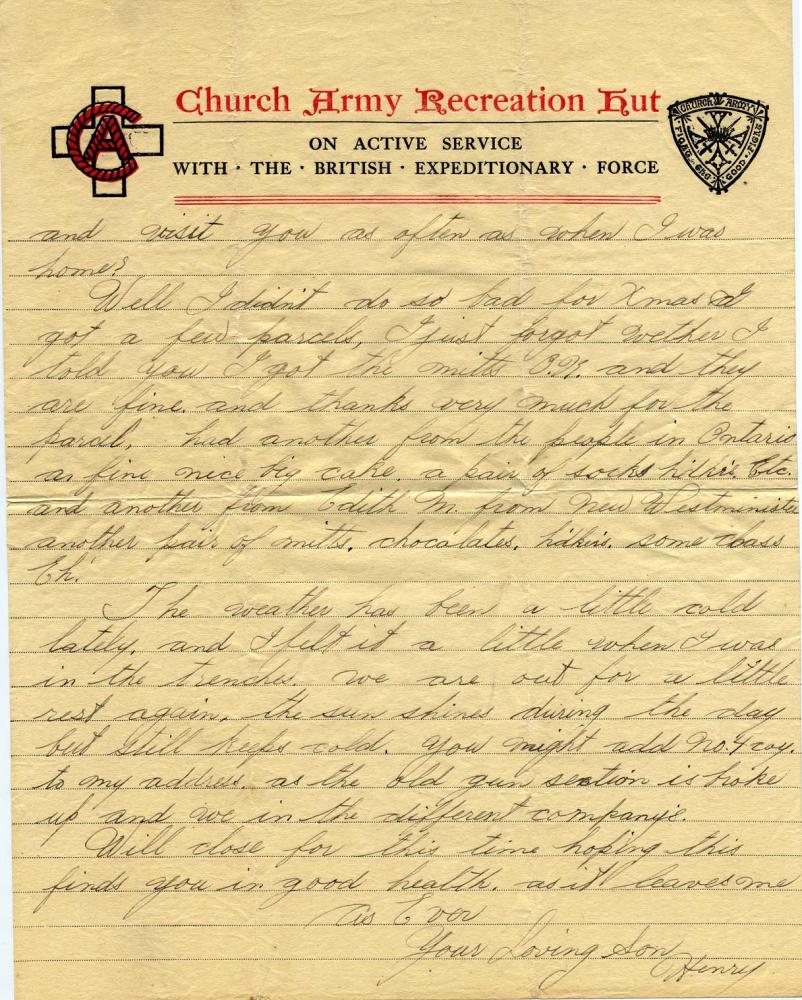 Church Army Recreation Hut
CA
CHURCH ARMY
FIGHT THE GOOD FIGHT
ON ACTIVE SERVICE
WITH · THE · BRITISH · EXPEDITIONARY · FORCE
and visit you as often as when I was
home?
Well I didn't do so bad for Xmas I
got a few parcels, I just forgot wether I
told you I got the mitts O.K. and they
are fine. and thanks very much for the
parcel. had another from the people in Ontario
a fine nice big cake. a pair of socks hdkr's. Etc.
and another from Edith M. from New Westminister
another pair of mitts. chocalates. hdkrs. some class
Eh!
The weather has been a little cold
lately, and I felt it a little when I was
in the trenches. we are out for a little
rest again. the sun shines during the day
but still keeps cold. you might add No. 4 coy.
to my address. as the old gun section is broke
up and we in the different company's.
Will close for this time hoping this
finds you in good health. as it leaves me
As Ever
Your Loving Son
Henry